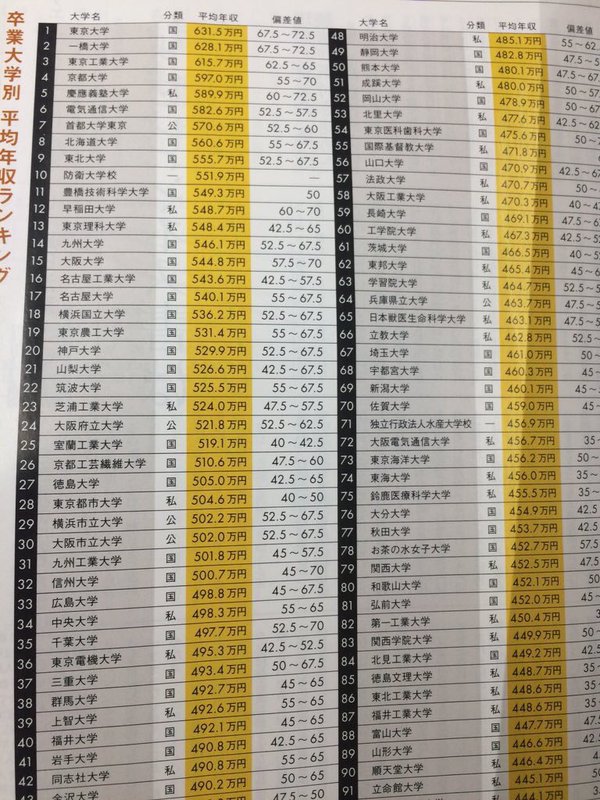 卒業大学別 平均年収ランキング
大学名 分類 平均年収 偏差値
1 東京大学 国 631.5万円 67.5～72.5
2 一橋大学 国 628.1万円 67.5～72.5
3 東京工業大学 国 615.7万円 62.5～65
4 京都大学 国 597.0万円 55～70
5 慶應義塾大学 私 589.9万円 60～72.5
6 電気通信大学 国 582.6万円 52.5～57.5
7 首都大学東京 公 570.6万円 52.5～60
8 北海道大学 国 560.6万円 55～67.5
9 東北大学 国 555.7万円 52.5～67.5
10 防衛大学校 — 551.9万円 —
11 豊橋技術科学大学 国 549.3万円 50
12 早稲田大学 私 548.7万円 60～70
13 東京理科大学 私 548.4万円 42.5～65
14 九州大学 国 546.1万円 52.5～67.5
15 大阪大学 国 544.8万円 57.5～70
16 名古屋工業大学 国 543.6万円 42.5～57.5
17 名古屋大学 国 540.1万円 55～67.5
18 横浜国立大学 国 536.2万円 52.5～67.5
19 東京農工大学 国 531.4万円 55～67.5
20 神戸大学 国 529.9万円 52.5～67.5
21 山梨大学 国 526.6万円 42.5～67.5
22 筑波大学 国 525.5万円 55～67.5
23 芝浦工業大学 私 524.0万円 47.5～57.5
24 大阪府立大学 公 521.8万円 52.5～62.5
25 室蘭工業大学 国 519.1万円 40～42.5
26 京都工芸繊維大学 国 510.6万円 47.5～60
27 徳島大学 国 505.0万円 42.5～65
28 東京都市大学 私 504.6万円 40～50
29 横浜市立大学 公 502.2万円 52.5～67.5
30 大阪市立大学 公 502.0万円 52.5～67.5
31 九州工業大学 国 501.8万円 45～57.5
32 信州大学 国 500.7万円 45～70
33 広島大学 国 498.8万円 45～67.5
34 中央大学 私 498.3万円 55～65
35 千葉大学 国 497.7万円 52.5～70
36 東京電機大学 私 495.3万円 42.5～52.5
37 三重大学 国 493.4万円 50～67.5
38 群馬大学 国 492.7万円 45～65
39 上智大学 私 492.6万円 55～65
40 福井大学 国 492.1万円 45～65
41 岩手大学 国 490.8万円 42.5～65
42 同志社大学 私 490.8万円 55～65
金沢大学 国 490.2万円 50～65
大学名 分類 平均年収 偏差値
48 明治大学 私 485.1万円
49 静岡大学 国 482.8万円
50 熊本大学 国 480.1万円
51 成蹊大学 私 480.0万円
52 岡山大学 国 478.9万円
53 北里大学 私 477.6万円
54 東京医科歯科大学 国 475.6万円
55 国際基督教大学 私 471.8万円
56 山口大学 国 470.9万円
57 法政大学 私 470.7万円
58 大阪工業大学 私 470.3万円
59 長崎大学 国 469.1万円
60 工学院大学 私 467.3万円
61 茨城大学 国 466.5万円
62 東邦大学 私 465.4万円
63 学習院大学 私 464.7万円
64 兵庫県立大学 公 463.7万円
65 日本獣医生命科学大学 私 463.1万円
66 立教大学 私 462.8万円
67 埼玉大学 国 461.0万円
68 宇都宮大学 国 460.3万円
69 新潟大学 国 460.1万円
70 佐賀大学 国 459.0万円
71 独立行政法人水産大学校 — 456.9万円
72 大阪電気通信大学 私 456.7万円
73 東京海洋大学 国 456.2万円
74 東海大学 私 456.0万円
75 鈴鹿医療科学大学 私 455.5万円
76 大分大学 国 454.9万円
77 秋田大学 国 453.7万円
78 お茶の水女子大学 国 452.7万円
79 関西大学 私 452.5万円
80 和歌山大学 国 452.1万円
81 弘前大学 国 452.0万円
82 第一工業大学 私 450.4万円
83 関西学院大学 私 449.9万円
84 北見工業大学 国 449.2万円
85 徳島文理大学 私 448.7万円
86 東北工業大学 私 448.6万円
87 福井工業大学 私 448.6万円
88 富山大学 国 447.7万円
89 山形大学 国 446.6万円
90 順天堂大学 私 446.4万円
91 立命館大学 私 445.1万円
444.1万円